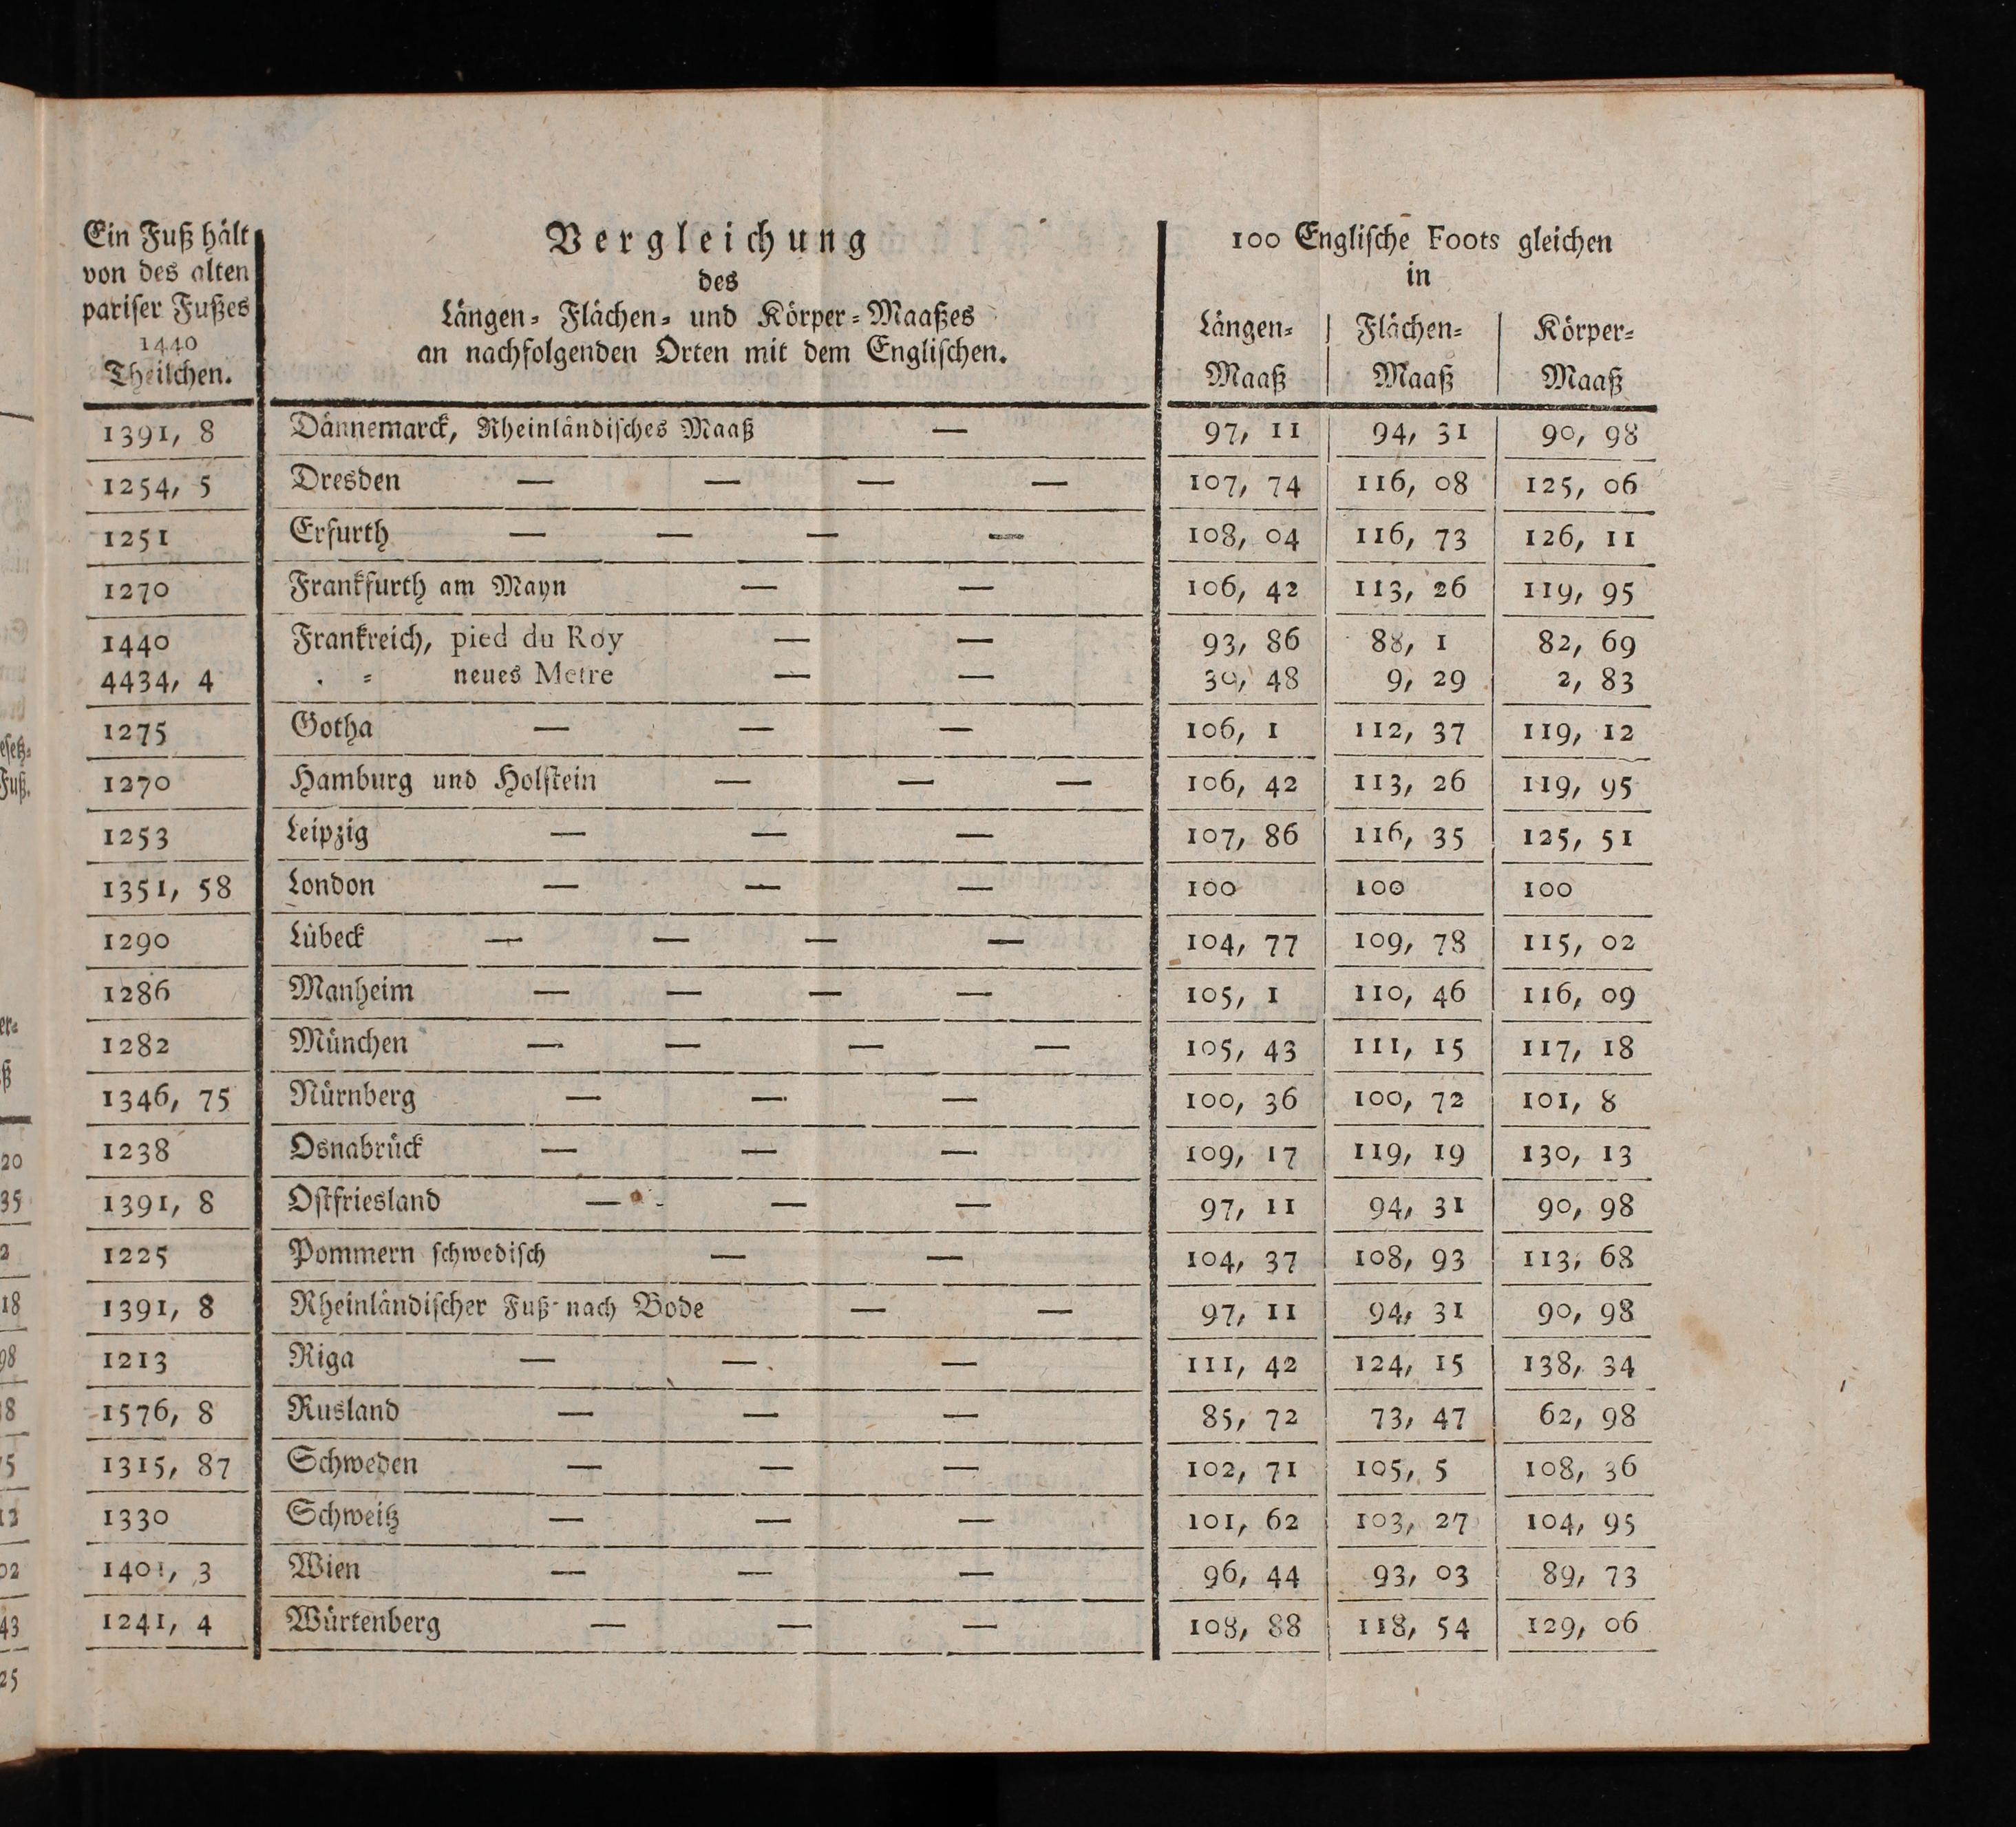 Ein Fuß hält
von des alten
pariser Fußes
1440
Theilchen.
Vergleichung
des
Längen- Flächen- und Körper-Maaßes
an nachfolgenden Orten mit dem Englischen.
100 Englische Foots gleichen
in
Längen- Flächen- Körper-
Maaß Maaß Maaß
1391, 8 Dännemarck, Rheinländisches Maaß — 97, 11 94, 31 90, 98
1254, 5 Dresden — — — — 107, 74 116, 08 125, 06
1251 Erfurth — — — — 108, 04 116, 73 126, 11
1270 Frankfurth am Mayn — — 106, 42 113, 26 119, 95
1440 Frankreich, pied du Roy — — 93, 86 88, 1 82, 69
4434, 4 . = neues Metre — — 30, 48 9, 29 2, 83
1275 Gotha — — — 106, 1 112, 37 119, 12
1270 Hamburg und Holstein — — — 106, 42 113, 26 119, 95
1253 Leipzig — — — 107, 86 116, 35 125, 51
1351, 58 London — — — 100 100 100
1290 Lübeck — — — — 104, 77 109, 78 115, 02
1286 Manheim — — — — 105, 1 110, 46 116, 09
1282 München — — — — 105, 43 111, 15 117, 18
1346, 75 Nürnberg — — — 100, 36 100, 72 101, 8
1238 Osnabrück — — — 109, 17 119, 19 130, 13
1391, 8 Ostfriesland — — — 97, 11 94, 31 90, 98
1225 Pommern schwedisch — — 104, 37 108, 93 113, 68
1391, 8 Rheinländischer Fuß nach Bode — — 97, 11 94, 31 90, 98
1213 Riga — — — 111, 42 124, 15 138, 34
1576, 8 Rusland — — — 85, 72 73, 47 62, 98
1315, 87 Schweden — — — 102, 71 105, 5 108, 36
1330 Schweitz — — — 101, 62 103, 27 104, 95
1401, 3 Wien — — — 96, 44 93, 03 89, 73
1241, 4 Würtenberg — — — 108, 88 118, 54 129, 06